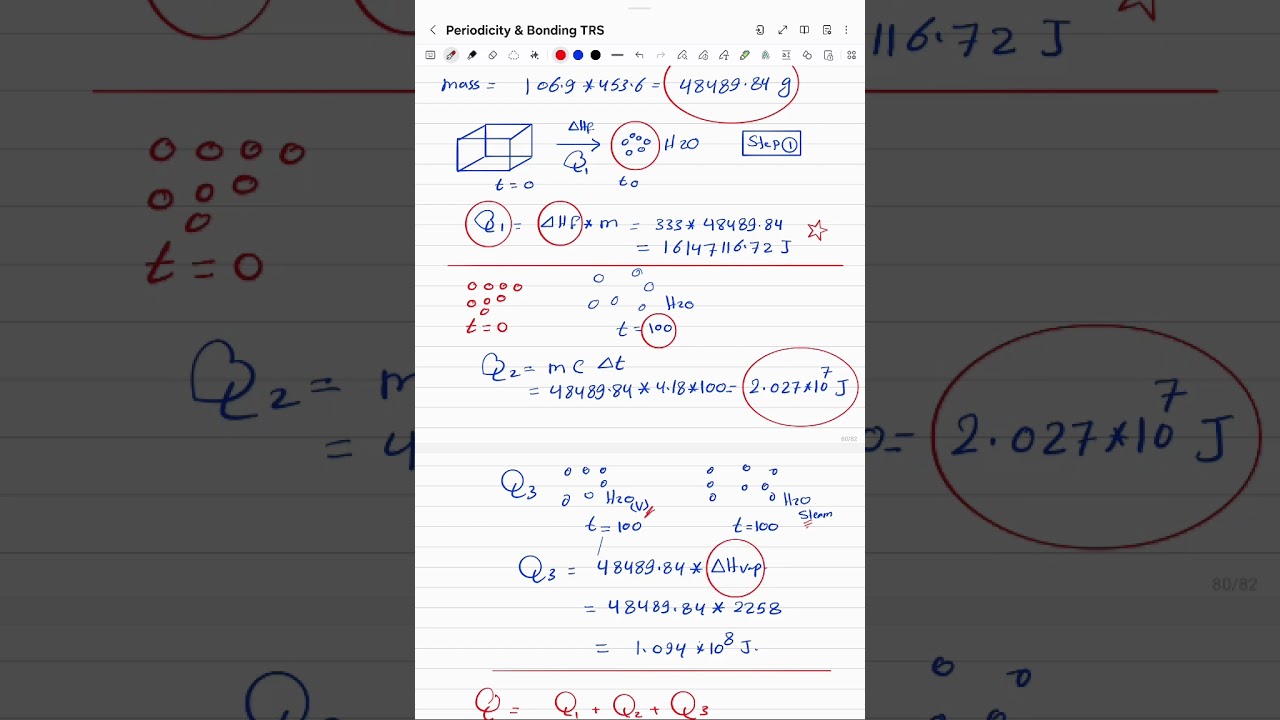 Periodicity & Bonding TRS
mass = 106.9 * 453.6 = 48489.84 g
ΔHf
Q1
H2O
Step 1
t = 0
t 0
Q1 = ΔHf * m = 333 * 48489.84
= 16147116.72 J
H2O
t = 0
t = 100
Q2 = m C Δt
= 48489.84 * 4.18 * 100 = 2.027 * 10^7 J
80/82
Q3
H2O (v)
H2O
Steam
t = 100
t = 100
Q3 = 48489.84 * ΔHvap
= 48489.84 * 2258
= 1.094 * 10^8 J.
Q = Q1 + Q2 + Q3
116.72 J
t = 0
Q2 = m
= 4
0 = 2.027 * 10^7 J
80/82